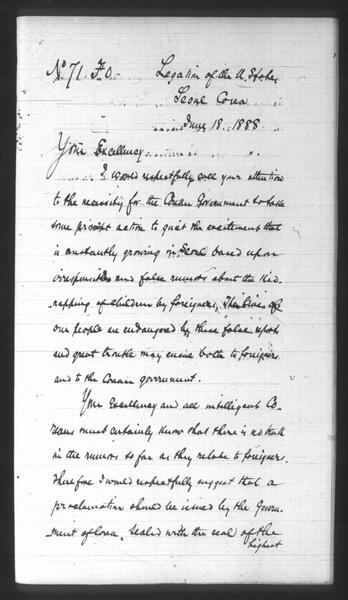 No 71. F.O.
Legation of the U. States
Seoul Corea
June 18. 1888
Your Excellency
I would respectfully call your attention
to the necessity for the Corean Government to take
some prompt action to quiet the excitement that
is constantly growing in Seoul based upon
irresponsible and false rumors about the kid-
napping of children by foreigners. The lives of
our people are endangered by these false reports
and great trouble may ensue both to foreigners
and to the Corean government.
Your Excellency and all intelligent Co-
reans must certainly know that there is no truth
in the rumors so far as they relate to foreigners.
Therefore I would respectfully suggest that a
proclamation should be issued by the Govern-
ment of Corea, sealed with the seal of the
highest